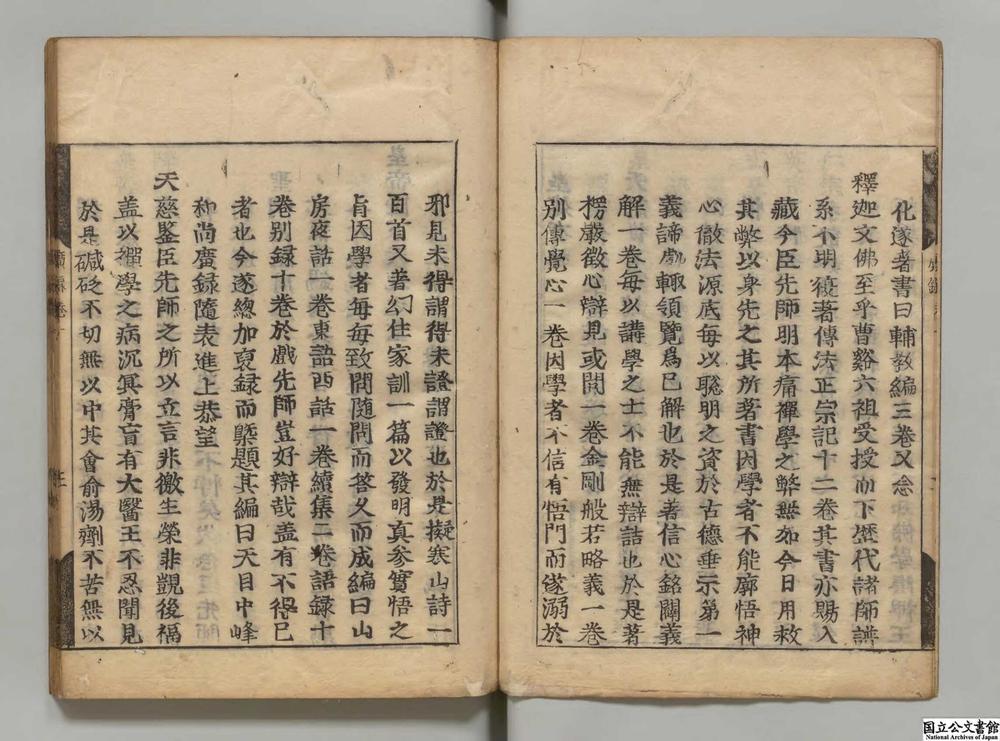 化遂著書曰輔教編三卷又念
釋迦文佛至乎曹谿六祖受授而下歷代諸師譜
系不明復著傳法正宗記十二卷其書亦賜入
藏今臣先師明本痛禪學之弊無如今日用救
其弊以身先之其所著書因學者不能廓悟神
心徹法源底每以聰明之資於古德垂示第一
義諦處輒領覽爲已解也於是著信心銘闢義
解一卷每以講學之士不能無辯詰也於是著
楞嚴徵心辯見或問一卷金剛般若略義一卷
別傳覺心一卷因學者不信有悟門而遂溺於
邪見未得謂得未證謂證也於是擬寒山詩一
百首又著幻住家訓一篇以發明真參實悟之
旨因學者每每致問隨問而答久而成編曰山
房夜話一卷東語西話一卷續集二卷語録十
卷別録十卷於戲先師豈好辯哉盖有不得已
者也今遂總加裒録而槩題其編曰天目中峰
和尚廣録隨表進上恭望
天慈鑒臣先師之所以立言非徼生榮非覬後福
盖以禪學之病沉冥膏肓有大醫王不忍聞見
於是鍼砭不切無以中其會俞湯劑不苦無以
廣録卷十
国立公文書館
National Archives of Japan